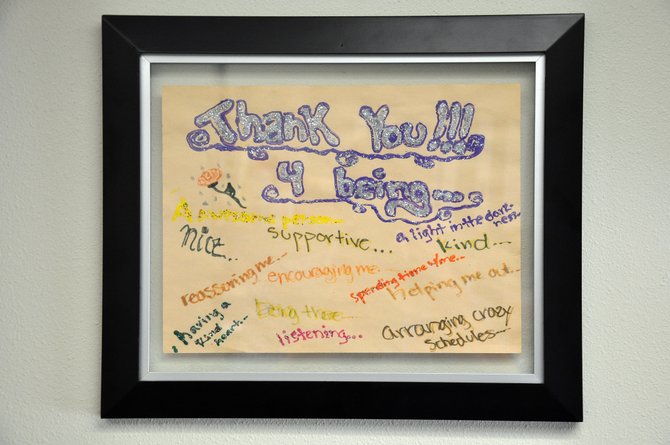 Thank You!!!
4 being...
A awesome person...
a light in the dark-
ness...
nice...
supportive...
kind...
reassuring me...
encouraging me...
spending time w/me...
helping me out...
having a
kind heart...
being there...
listening...
arranging crazy
schedules...